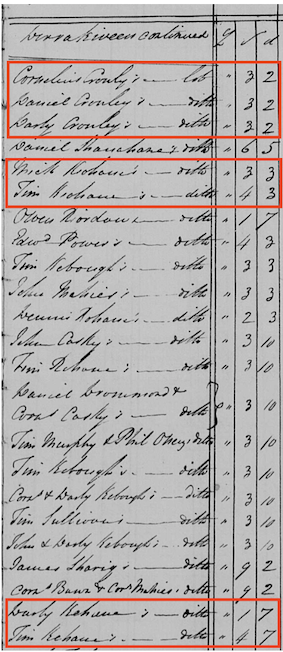 Derrakiveen continued £ s d
Cornelius Crowly's — lot " 3 2
Daniel Crowley's — ditto " 3 2
Darly Crowley's — ditto " 3 2
Daniel Shanahane's ditto " 6 5
Mick Kohane's — ditto " 3 3
Tim Kehane — ditto " 4 3
Owen Riordan — ditto " 1 7
Edwd Power's — ditto " 4 3
Tim Kebough's — ditto " 3 3
John Mahies' — ditto " 3 3
Dennis Kohane's — ditto " 2 3
John Casky's — ditto " 3 10
Tim Kehane — ditto " 3 10
Daniel Drommond &
Corns Casky's — ditto " 3 10
Tim Murphy & Phil ditto " 3 10
Tim Kebough's — ditto " 3 10
Corns & Darly Kebough's — ditto " 3 10
Tim Sullivan's — ditto " 3 10
John & Darly Kebough's — ditto " 3 10
James — ditto " 9 2
Corns & Corns Mahies' ditto " 9 2
Darly Kehane's — ditto " 1 7
Tim Kehane's — ditto " 4 7